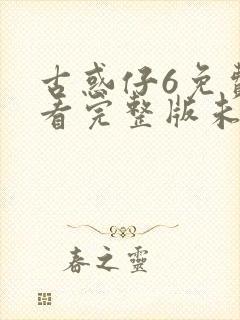 古惑仔6免費
看完整版未
春之靈